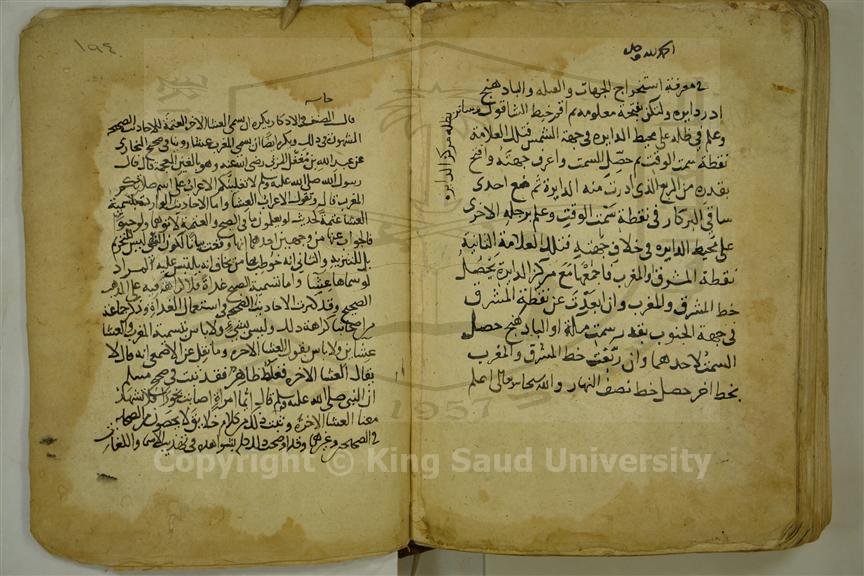 الحمد لله وحده
في معرفة استخراج الجهات والقبلة والباد هنج
ادر دايرة ولتكن بفتحة معلومة ثم اقم خيط الشاقول
بظله مركز الدايرة
وعلم في ظله على محيط الدايرة في جهة الشمس فتلك العلامة
نقطة سمت الوقت ثم حصل السمت واعرف جهته وافتح
بقدره من الربع الذي ادرت منه الدايرة ثم ضع احدى
ساقي البركار في نقطة سمت الوقت وعلم برجله الاخرى
على محيط الدايرة في خلاف جهته فتلك العلامة الثانية
نقطة المشرق والمغرب فاجمعها مع مركز الدايرة يحصل
خط المشرق والمغرب وان بعدت عن نقطة المشرق
في جهة الجنوب بقدر سمت مكة او الباد هنج حصل
السمت لاحدهما وان ربعت خط المشرق والمغرب
بخط اخر حصل خط نصف النهار والله سبحانه وتعالى اعلم
١٩٤
قال المصنف في الاذكار يكره ان تسمى العشا الاخرة العتمة للاحاديث الصحيحة
المشهورة في ذلك ويكره ايضا ان تسمى المغرب عشا روينا في صحيح البخاري
عن عبد الله بن مغفل المزني رضي الله عنه وهو بالغين المعجمة قال قال
رسول الله صلى الله عليه وسلم لا تغلبنكم الاعراب على اسم صلاتكم
المغرب قال وتقول الاعراب العشا واما الاحاديث الواردة بتسمية
العشا عتمة كحديث لو يعلمون ما في الصبح والعتمة لاتوهما ولو حبوا
فالجواب عنها من وجهين احدهما انها وقعت بيانا لكون النهي ليس للتحريم
بل للتنزيه والثاني انه خوطب بها من يخاف انه يلتبس عليه المراد
لو سماها عشا واما تسمية الصبح غداة فلا كراهة فيه على المذهب
الصحيح وقد كثرت الاحاديث الصحيحة في استعمال الغداة وذكر جماعة
من اصحابنا كراهة ذلك وليس بشيء ولا باس بتسمية المغرب والعشا
عشاين ولا باس بقول العشا الاخرة وما نقل عن الاصمعي انه قال لا
يقال العشا الاخرة فغلط ظاهر فقد ثبت في صحيح مسلم
ان النبي صلى الله عليه وسلم قال ايما امراة اصابت بخورا فلا تشهد
معنا العشا الاخرة وثبت ذلك من كلام خلايق لا يحصون من الصحابة
في الصحيحين وغيرهما وقد اوضحت ذلك كله بشواهده في تهذيب الاسما واللغات
Copyright © King Saud University
1957